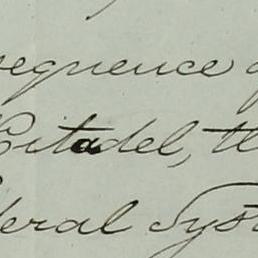 sequence of
Citadel, th
deral Syst